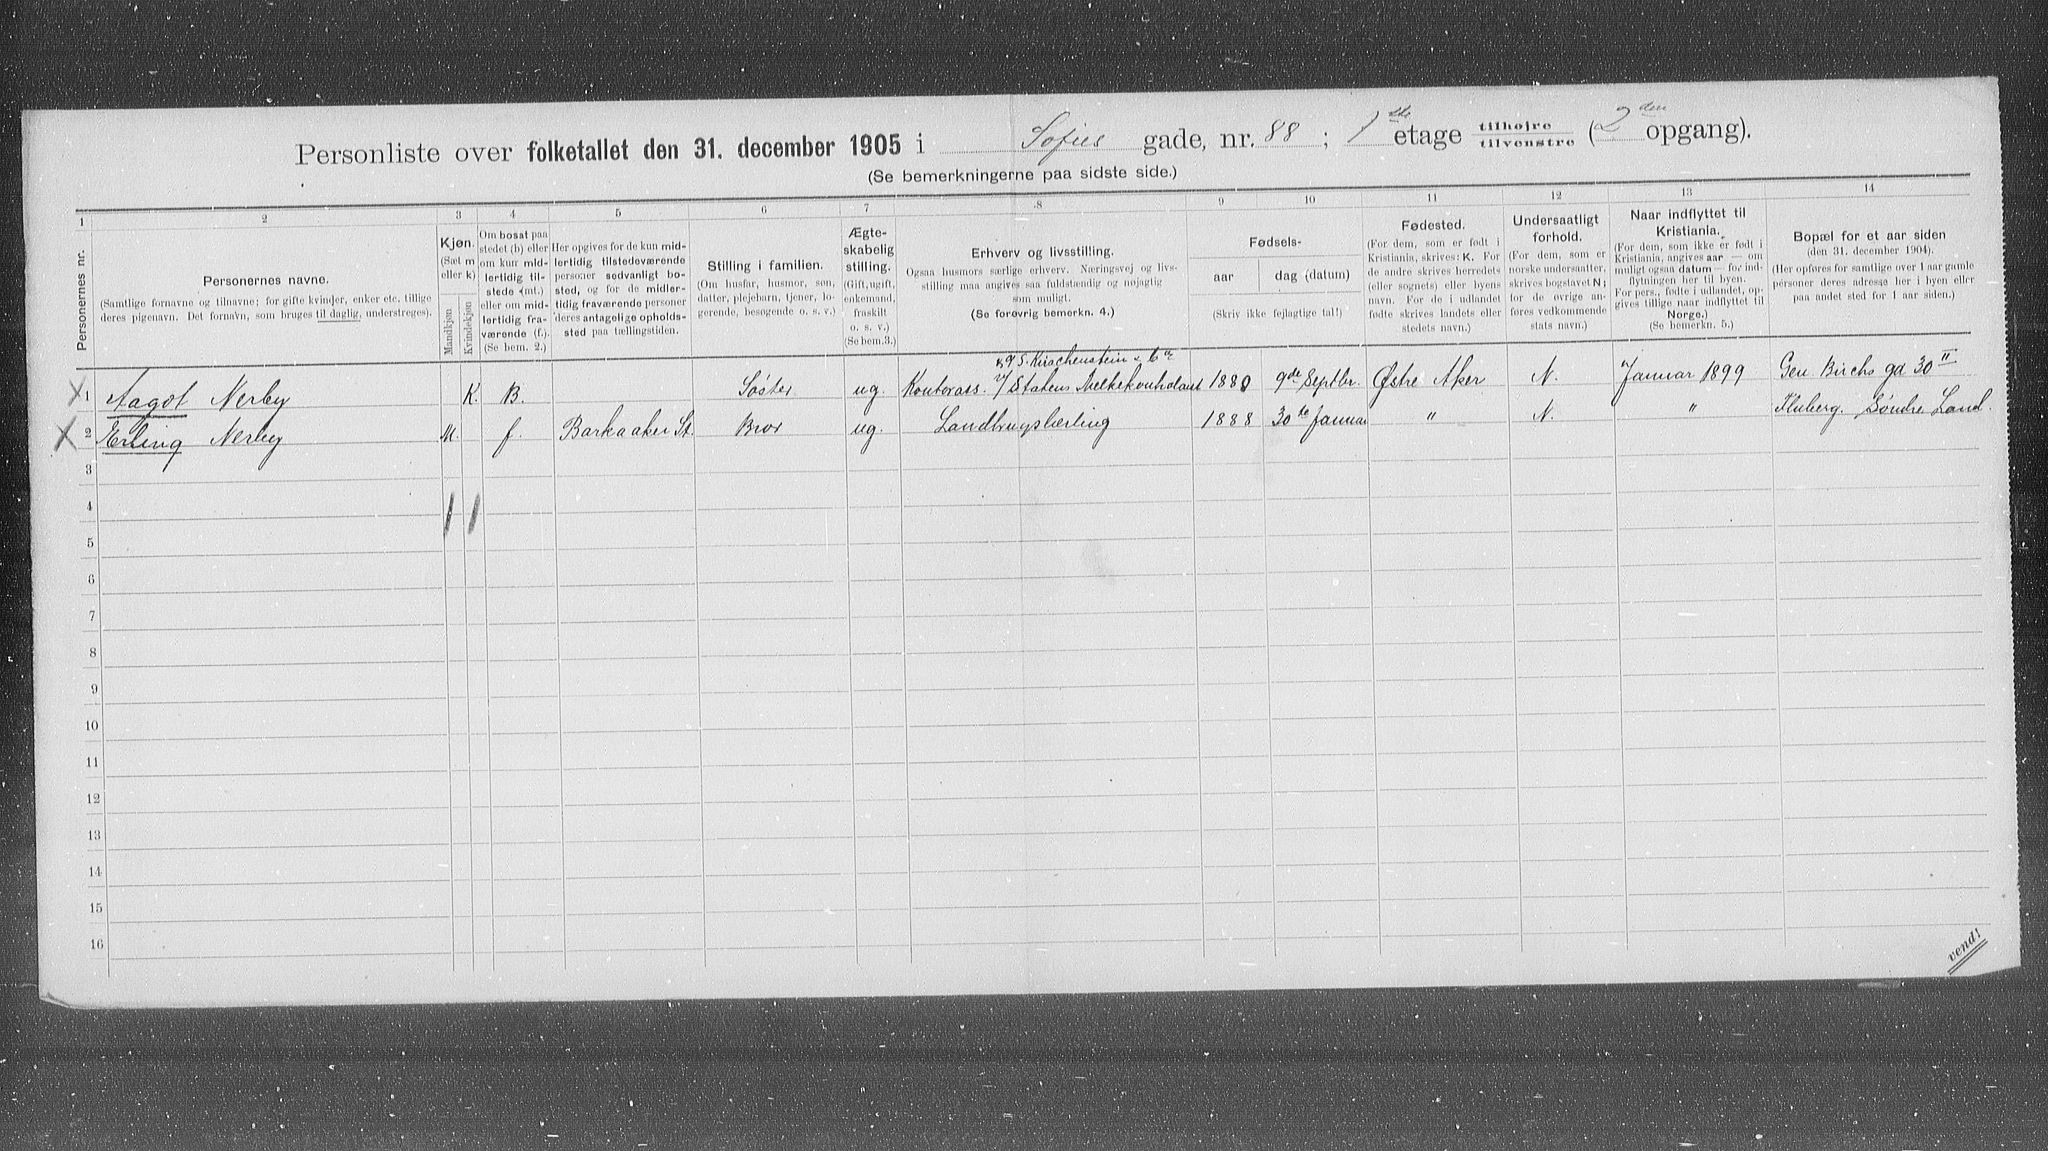 Personliste over folketallet den 31. december 1905 i Sofies gade, nr. 88; 1ste etage tilhøjre tilvenstre (2den opgang).
(Se bemerkningerne paa sidste side.)
1 2 3 4 5 6 7 8 9 10 11 12 13 14
Personernes nr.
Personernes navne.
(Samtlige fornavne og tilnavne; for gifte kvinder, enker etc. tillige
deres pigenavn. Det fornavn, som bruges til daglig, understreges).
Kjøn.
(Sæt m
eller k)
Mandkjøn
Kvindekjøn
Om bosat paa
stedet (b) eller
om kun mid-
lertidig til-
stede (mt.)
eller om mid-
lertidig fra-
værende (f.).
(Se bem. 2.)
Her opgives for de kun mid-
lertidig tilstedeværende
personer sedvanligt bo-
sted, og for de midler-
tidig fraværende personer
deres antagelige opholds-
sted paa tællingstiden.
Stilling i familien.
(Om husfar, husmor, søn,
datter, plejebarn, tjener, lo-
gerende, besøgende o. s. v.)
Ægte-
skabelig
stilling.
(Gift, ugift,
enkemand,
fraskilt
o. s. v.)
(Se bem. 3.)
Erhverv og livsstilling.
Ogsaa husmors særlige erhverv. Næringsvej og livs-
stilling maa angives saa fuldstændig og nøjagtig
som muligt.
(Se forøvrig bemerkn. 4.)
Fødsels-
aar dag (datum)
(Skriv ikke fejlagtige tal!)
Fødested.
(For dem, som er født i
Kristiania, skrives: K. For
de andre skrives herredets
(eller sognets) eller byens
navn. For de i udlandet
fødte skrives landets eller
stedets navn.)
Undersaatligt
forhold.
(For dem, som er
norske undersaatter,
skrives bogstavet N;
for de øvrige an-
føres vedkommende
stats navn.)
Naar indflyttet til
Kristiania.
(For dem, som ikke er født i
Kristiania, angives aar — om
muligt ogsaa datum — for ind-
flytningen her til byen.
For pers., fødte i udlandet, op-
gives tillige naar indflyttet til
Norge.)
(Se bemerkn. 5.)
Bopæl for et aar siden
(den 31. december 1904).
(Her opføres for samtlige over 1 aar gamle
personer deres adresse her i byen eller
paa andet sted for 1 aar siden.)
Kirschenstein
X 1 Aagot Nerby K. B. Søster ug. Kontorass. v/ Statens Melkekontrolant 1880 9de Septbr. Østre Aker N. Januar 1899 Gen Birchs gd 30 II
X 2 Erling Nerby M. f. Barkaaker St. Bror ug. Landbrugslærling 1888 30te Januar " N. " Fluberg. Søndre Land.
3
4 1 1
5
6
7
8
9
10
11
12
13
14
15
16
vend!